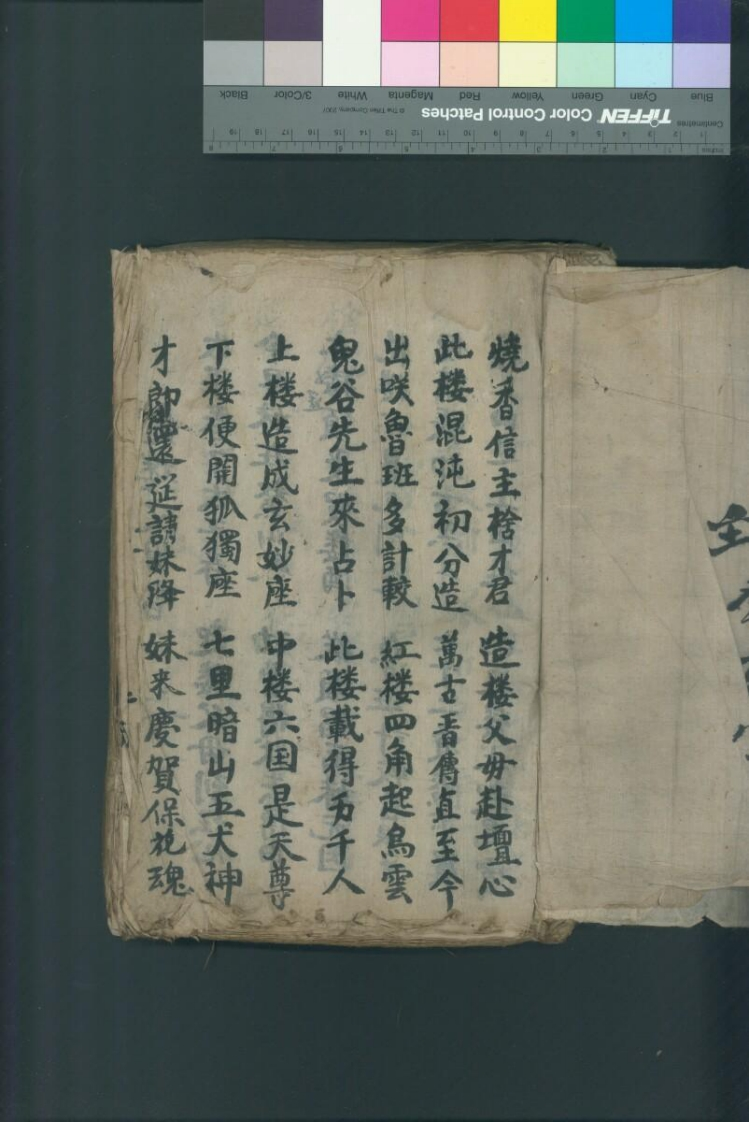 燒香信主捨才君 造楼父母赴壇心
此楼混沌初分造 萬古晋傳直至今
出咲魯班多計較 紅楼四角起烏雲
鬼谷先生來占卜 此楼載得万千人
上楼造成玄妙座 中楼六国是天尊
下楼便開狐獨座 七里暗山五犬神
才郎還筵請妹降 妹来慶賀保花魂
Blue Cyan Green Yellow Red Magenta White 3/Color Black
TIFFEN Color Control Patches
© The Tiffen Company, 2007
Centimetres
Inches